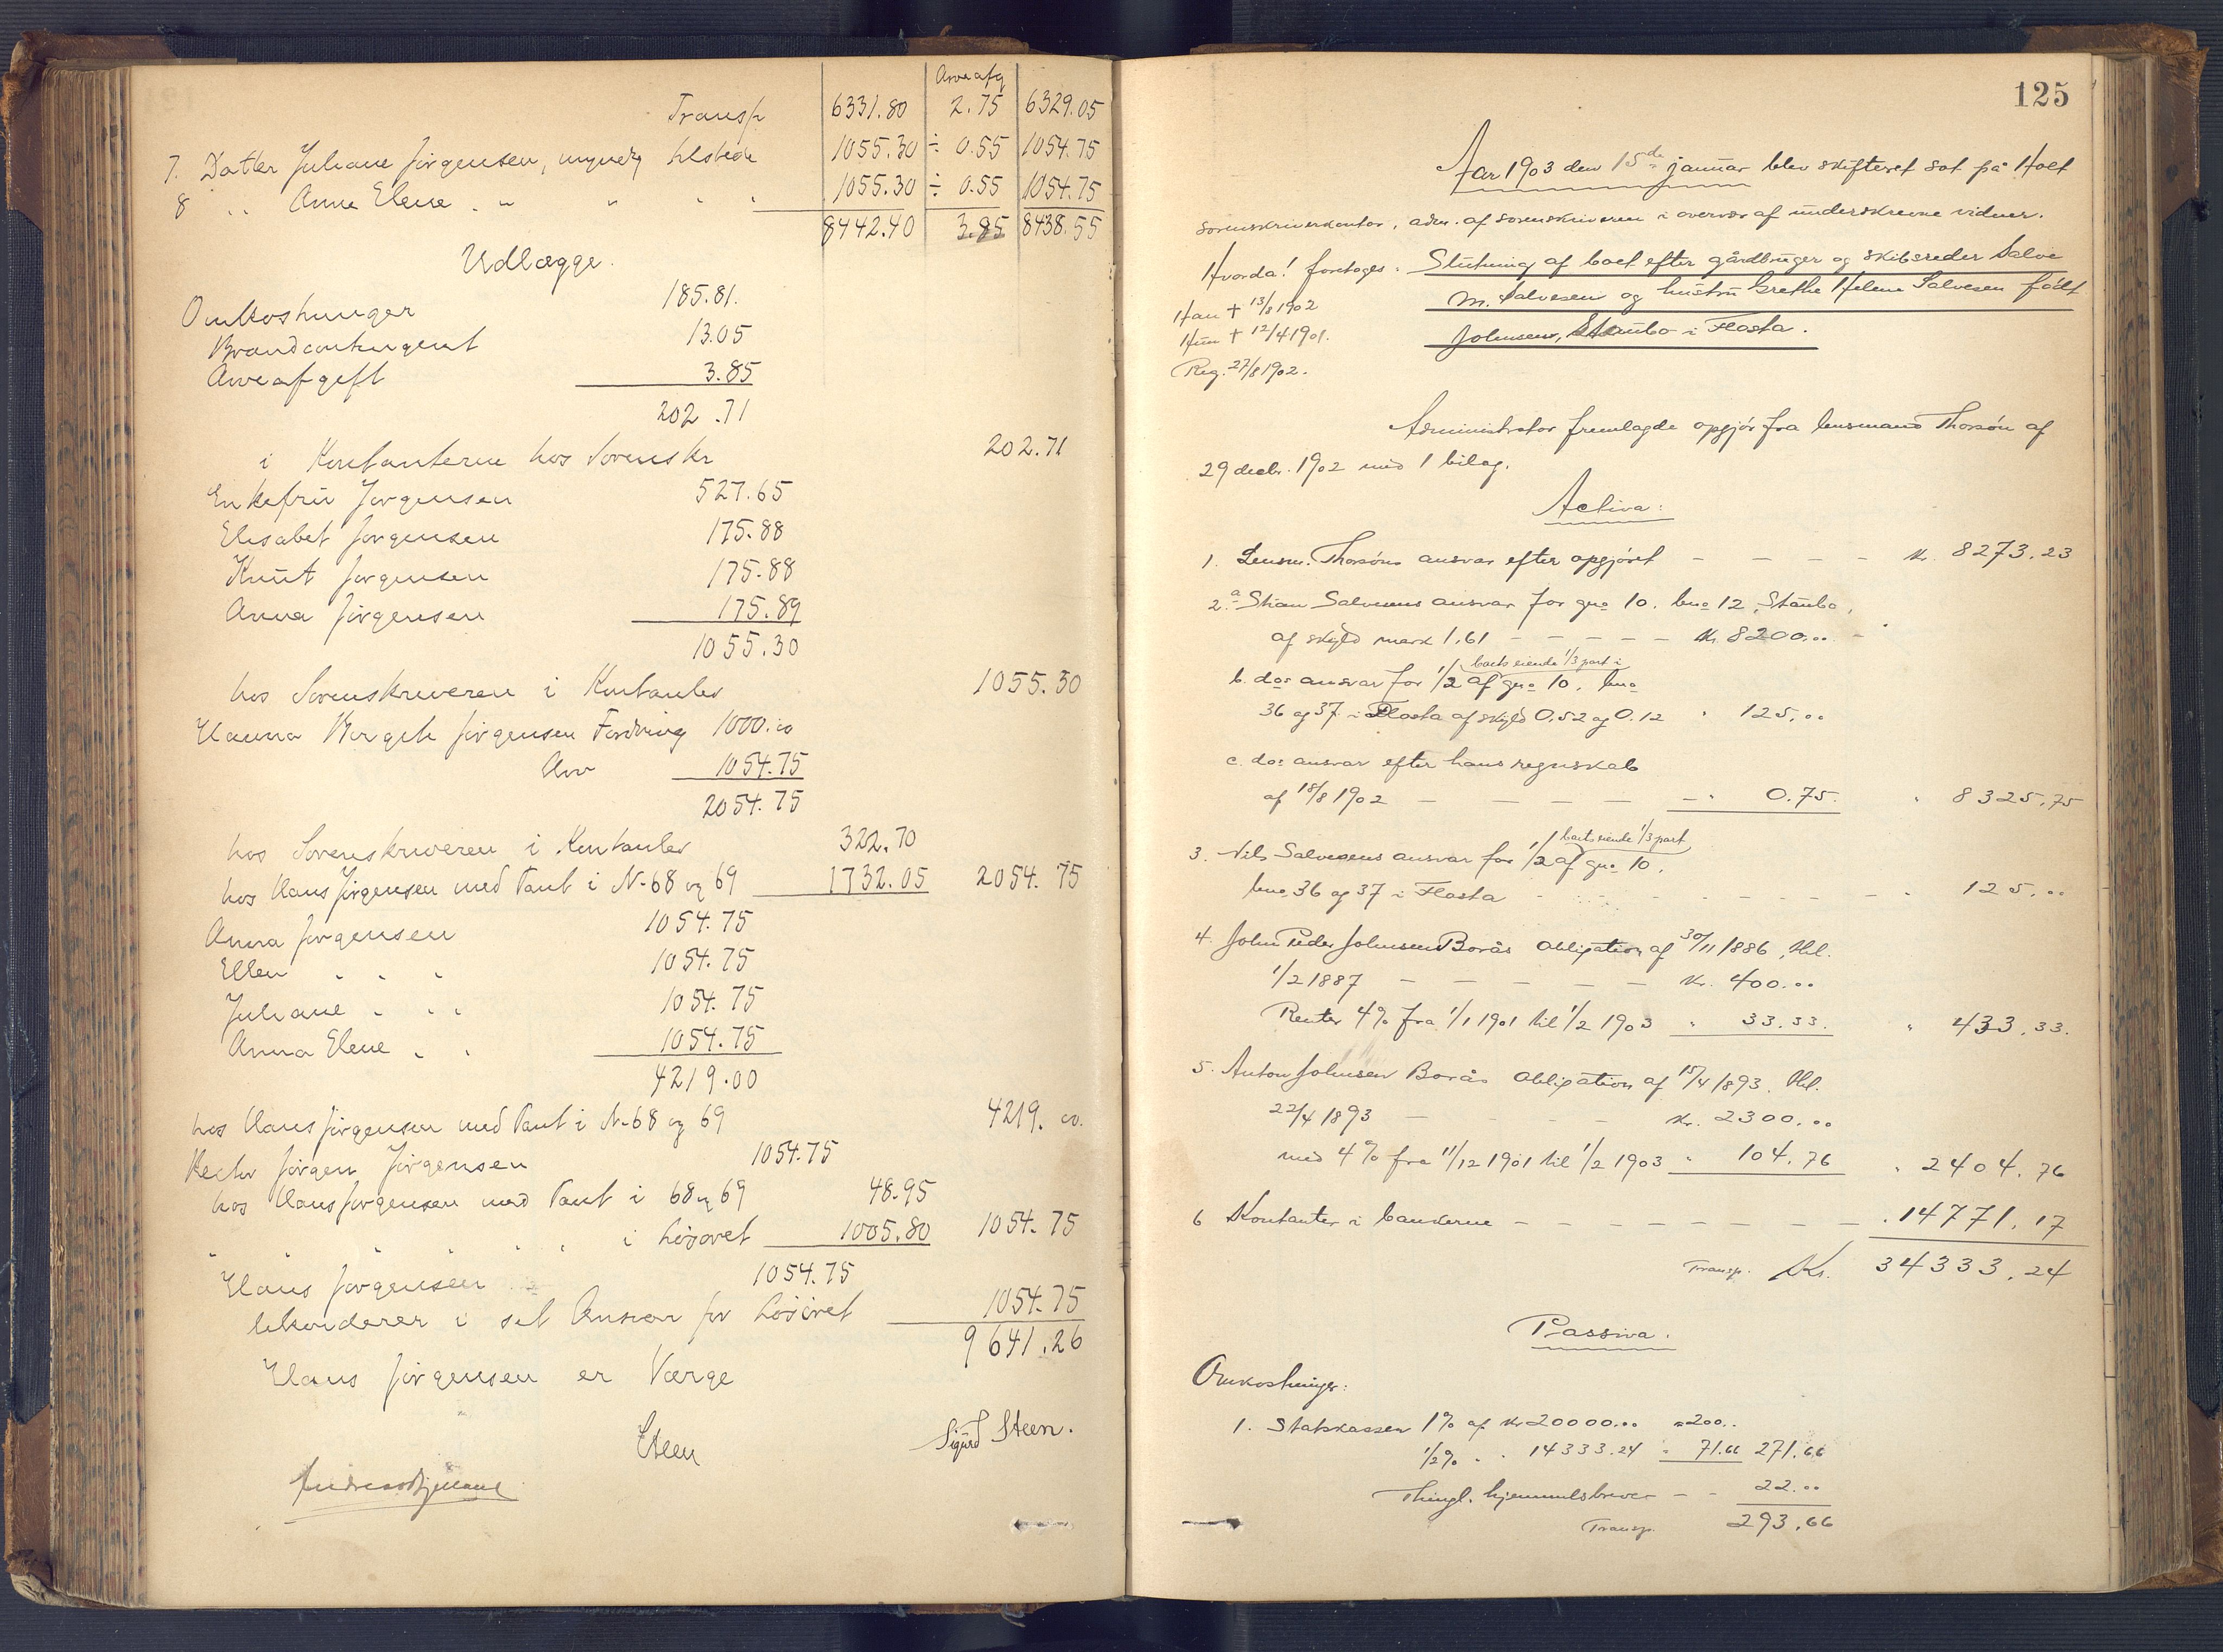 Arveafg
Transp 6331.80 2.75 6329.05
7. Datter Juliane Jørgensen, myndig tilstede 1055.30 ÷ 0.55 1054.75
8 " Anne Elene " " " " 1055.30 ÷ 0.55 1054.75
8442.40 3.85 8438.55
Udlægge.
Omkostninger 185.81.
Brandcontingent 13.05
Arveafgift 3.85
202.71
i Kontanterne hos Sorenskr 202.71
Enkefru Jørgensen 527.65
Elisabet Jørgensen 175.88
Knut Jørgensen 175.88
Anna Jørgensen 175.89
1055.30
hos Sorenskriveren i Kontanter 1055.30
Hanna Bergete Jørgensen Fordring 1000.00
Arv 1054.75
2054.75
hos Sorenskriveren i Kontanter 322.70
hos Hans Jørgensen med Pant i N- 68 og 69 1732.05 2054.75
Anna Jørgensen 1054.75
Ellen " " " 1054.75
Juliane " " " 1054.75
Anna Elene " " 1054.75
4219.00
hos Hans Jørgensen med Pant i N- 68 og 69 4219.00.
Rector Jørgen Jørgensen 1054.75
hos Hans Jørgensen med Pant i 68 og 69 48.95
" " " " " " i Løsøret 1005.80 1054.75
Hans Jørgensen 1054.75
likviderer i sit Ansvar for Løsøret 1054.75
9641.26
Hans Jørgensen er Værge
Steen
Sigurd Steen.
125
Aar 1903 den 15de januar blev skifteret sat på Holt
sorenskriverkontor, adm. af sorenskriveren i overvær af underskrevne vidner.
Hvorda! foretoges: Slutning af boet efter gårdbruger og skibsreder Salve
M. Salvesen og hustru Grethe Helene Salvesen født
Johnsen, Staubo i Flosta.
Han † 13/8 1902
Hun † 12/4 1901.
Reg. 27/8 1902.
Administrator fremlagde opgjør fra lensmand Thorsøn af
29 decbr. 1902 med 1 bilag.
Activa:
1. Lensm. Thorsøns ansvar efter opgjøret - - - - kr. 8273.23
2. a Stian Salvesens ansvar for gno 10. bno 12, Staubo,
af skyld mark 1.61 - - - - - kr. 8200.00 -
boets eiende 1/3 part i
b. do: ansvar for 1/2 af gno 10, bno
36 og 37 i Flosta af skyld 0.52 og 0.12 " 125.00
c. do: ansvar efter hans regnskab
af 18/8 1902 - - - - - - " 0.75. " 8325.75
boets eiende 1/3 part
3. Nils Salvesens ansvar for 1/2 af gno 10,
bno 36 og 37 i Flosta - - - - - - - " 125.00
4. John Peder Johnsen Borås obligation af 30/11 1886, thl.
1/2 1887 - - - - - kr. 400.00
Renter 4% fra 1/1 1901 til 1/2 1903 " 33.33. " 433.33.
5. Anton Johnsen Borås obligation af 15/4 1893. thl.
22/4 1893 - - - - kr. 2300.00
med 4% fra 11/12 1901 til 1/2 1903 " 104.76 " 2404.76
6 Kontanter i bankerne - - - - - - - - . 14771.17
Transp. Kr. 34333.24
Passiva.
Omkostninger:
1. Statskassen 1% af kr 20000.00 = 200..
1/2% " " 14333.24 " 71.66 271.66
Thingl. hjemmelsbreve - - 22.00
Transp. 293.66